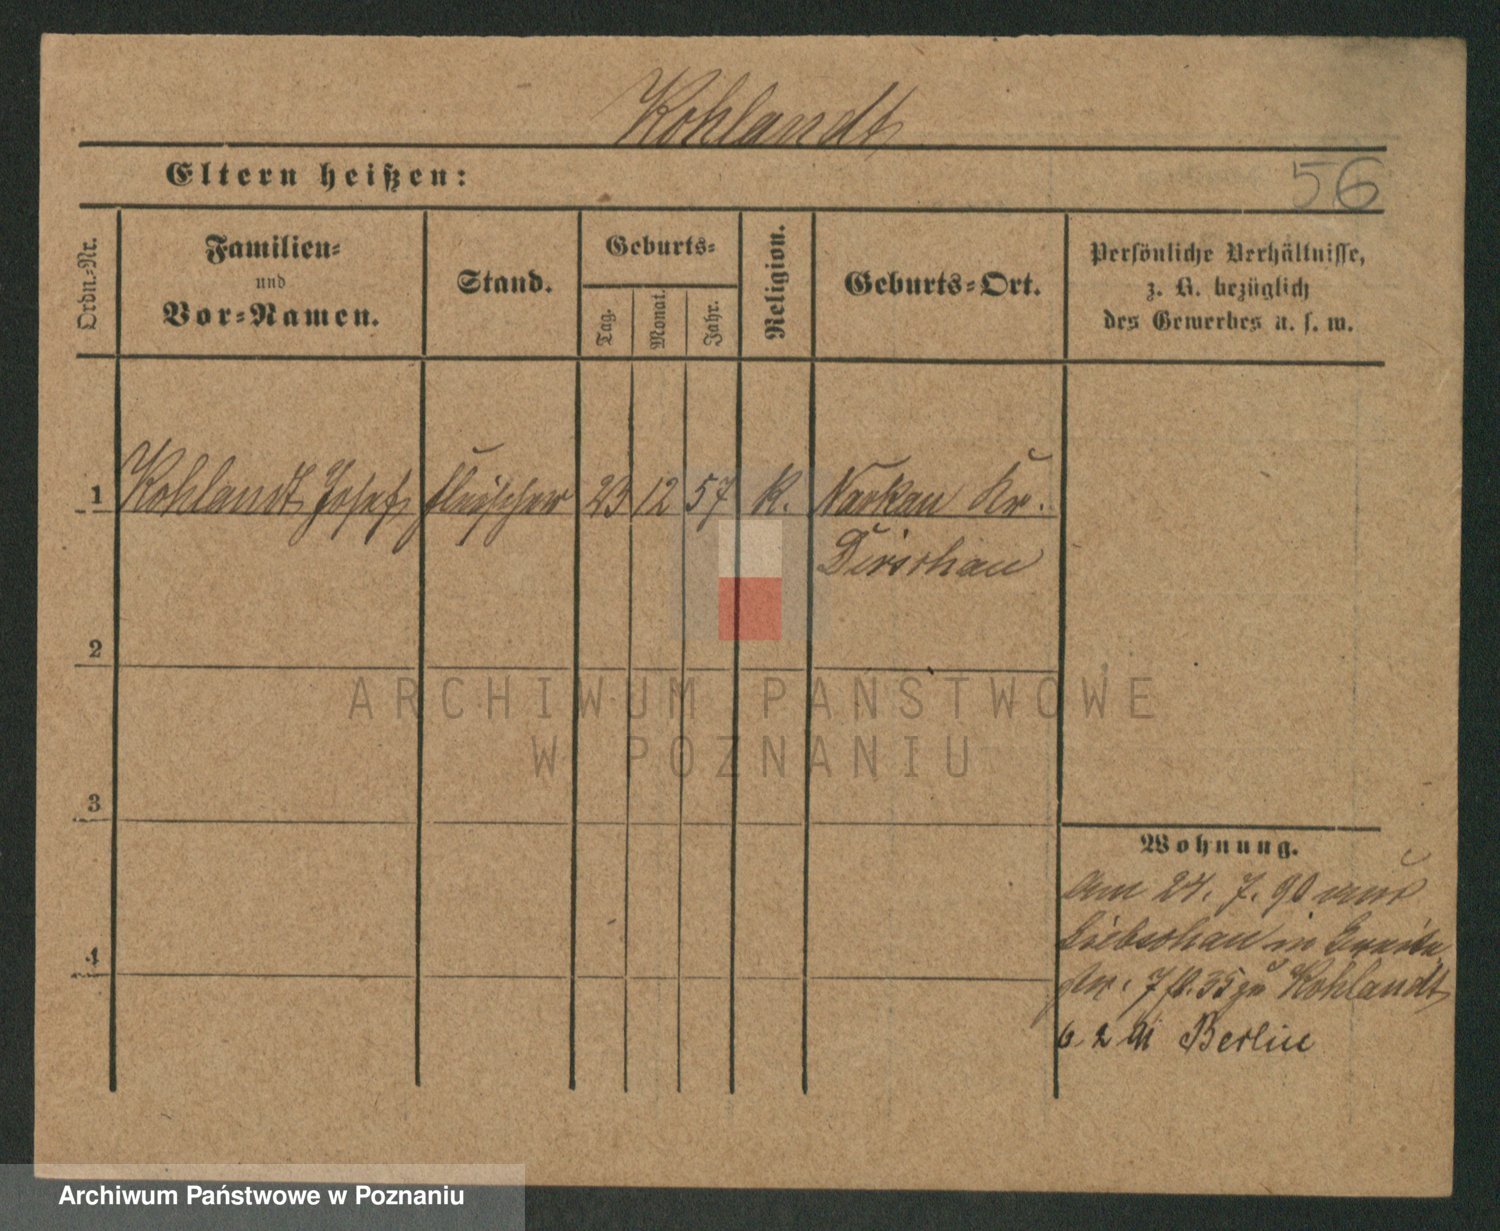 Kohlandt
Eltern heißen:
56
Ordn.-Nr.
Familien-
und
Vor-Namen.
Stand.
Geburts-
Tag.
Monat.
Jahr.
Religion.
Geburts-Ort.
Persönliche Verhältnisse,
z. B. bezüglich
des Gewerbes u. s. w.
1 Kohlandt Josef Fleischer 23 12 57 K. Narkau Kr.
Dirschau
2
3
4
Wohnung.
Am 24. 7. 90 aus
Liebschau in
7 zu Kohlandt
6. 2 91 Berlin
ARCHIWUM PAŃSTWOWE
W POZNANIU
Archiwum Państwowe w Poznaniu